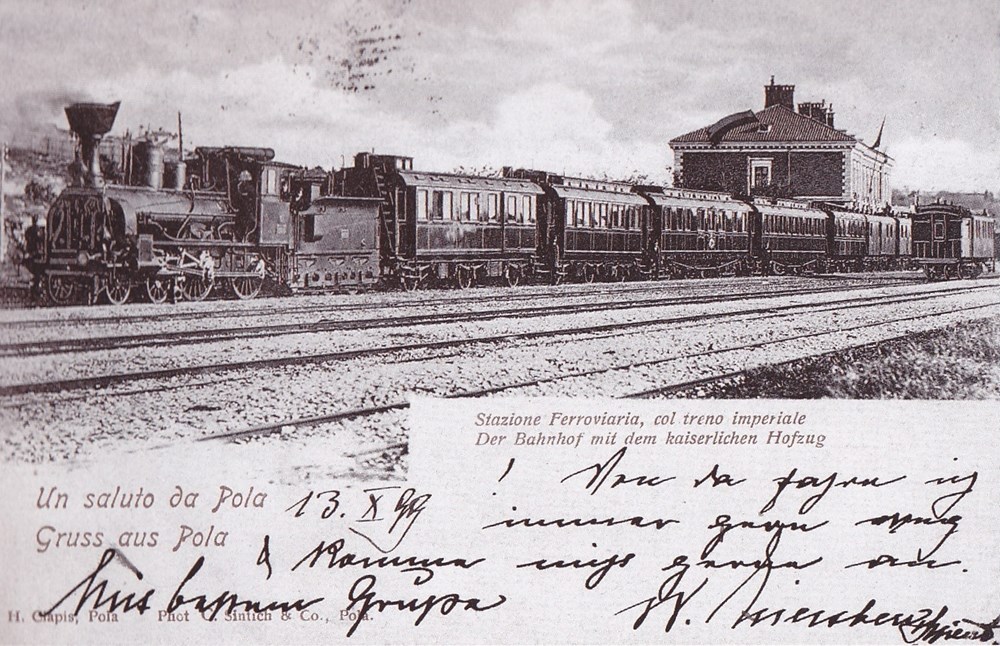 Stazione Ferroviaria, col treno imperiale
Der Bahnhof mit dem kaiserlichen Hofzug
Un saluto da Pola
13. X 99
Gruss aus Pola
! Von da fahre ich
immer gern weg
& komme nie gerne an.
Mit bestem Grusse
H. Clapis, Pola Phot G. Sintich & Co., Pola.